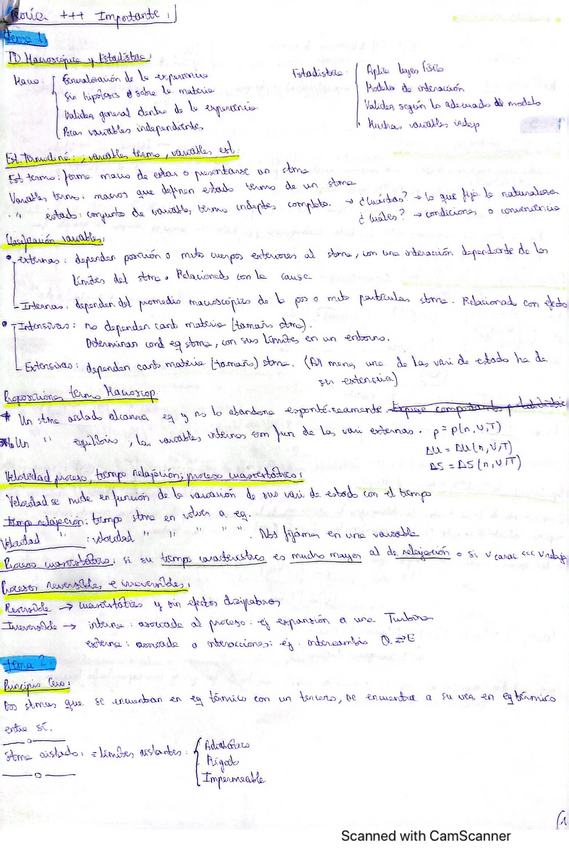 Teoría +++ Importante:
Tema 1
TD Macroscópica y Estadística:
Macro: Generalización de la experiencia
Sin hipótesis sobre la materia
Validez general dentro de la experiencia
Pocas variables independientes.
Estadística: Aplica leyes físic
Modelo de interacción
Validez según lo adecuado del modelo
Muchas variables indep
Est. termodiná:, variables termo, variables est.
Est termo: forma macro de estar o presentarse un stma
Variables termo: macros que definen estado termo de un stma
" " estado: conjunto de variables termo indeptes completo. → ¿Cuántas? → lo que fije la naturaleza
¿Cuáles? → condiciones o conveniencia
Clasificación variables:
Externas: dependen posición o mvto cuerpos exteriores al stma, con una interacción dependiente de los
límites del stma. Relacionado con la causa
Internas: dependen del promedio macroscópico de la pos o mvto partículas stma. Relacionad con efecto
Intensivas: no dependen cant materia (tamaño stma).
Determinan cond eq stma, con sus límites en un entorno.
Extensivas: dependen cant materia (tamaño) stma. (Al menos una de las vari de estado ha de
ser extensiva)
Proposiciones termo Macroscop.
* Un stma aislado alcanza eq y no lo abandona espontáneamente
* Un " equilibrio, las variables internas son fun de las vari externas. p = p(n,V,T)
ΔU = ΔU(n,V,T)
ΔS = ΔS(n,V,T)
Velocidad proceso, tiempo relajación; proceso cuasiestático:
Velocidad se mide en función de la variación de sus vari de estado con el tiempo
Tiempo relajación: tiempo stma en volver a eq.
Velocidad " : velocidad " " " " ". Nos fijamos en una variable
Proceso cuasiestático: si su tiempo característico es mucho mayor al de relajación o si v carac <<< v relaja
Procesos reversibles e irreversibles:
Reversible → cuasiestático y sin efectos disipativos
Irreversible → interna: asociada al proceso: ej expansión a una Turbina
externa: asociada a interacciones: ej. intercambio Q ⇄ E
Tema 2
Principio Cero:
Dos stmas que se encuentran en eq térmico con un tercero, se encuentra a su vez en eq térmico
entre sí.
Stma aislado: = límites aislantes: Adiabático
Rígido
Impermeable
Scanned with CamScanner